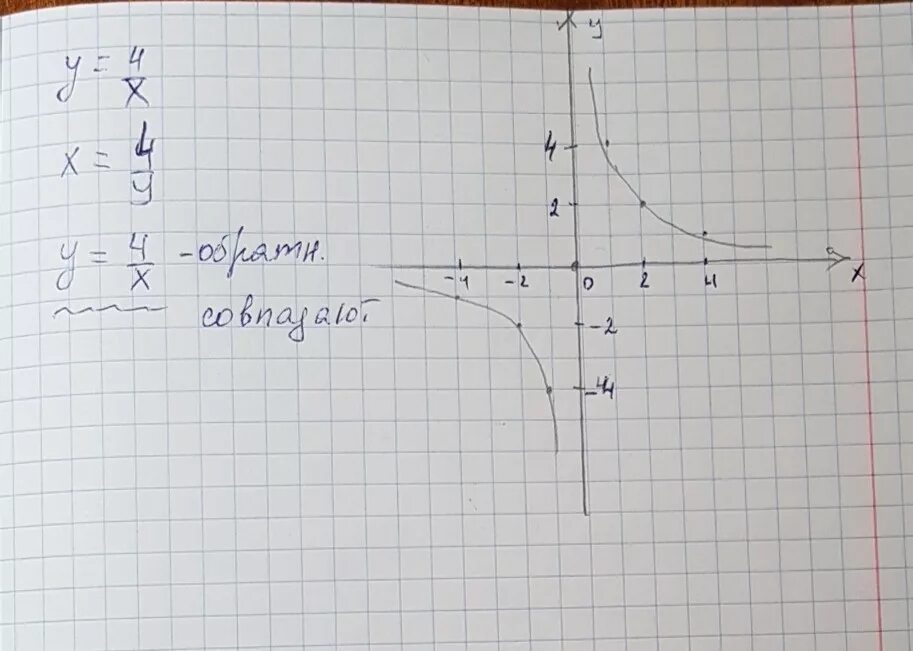 y = 4/x
x = 4/y
y = 4/x - обратн.
совпадают.
y
4
2
-4 -2 0 2 4 x
-2
-4